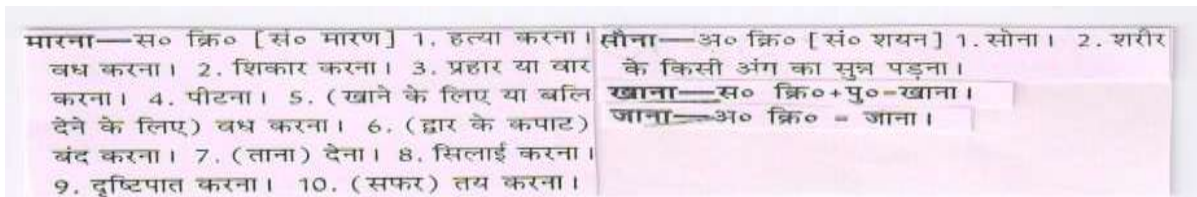 मारना—स० क्रि० [सं० मारण] 1. हत्या करना।
वध करना। 2. शिकार करना। 3. प्रहार या वार
करना। 4. पीटना। 5. (खाने के लिए या बलि
देने के लिए) वध करना। 6. (द्वार के कपाट)
बंद करना। 7. (ताना) देना। 8. सिलाई करना।
9. दृष्टिपात करना। 10. (सफर) तय करना।
सौना—अ० क्रि० [सं० शयन] 1. सोना। 2. शरीर
के किसी अंग का सुन्न पड़ना।
खाना—स० क्रि०+पु०=खाना।
जाना—अ० क्रि० = जाना।